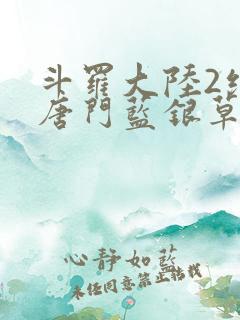 斗羅大陸2絕
唐門藍銀草
心靜如藍
未经同意禁止转载